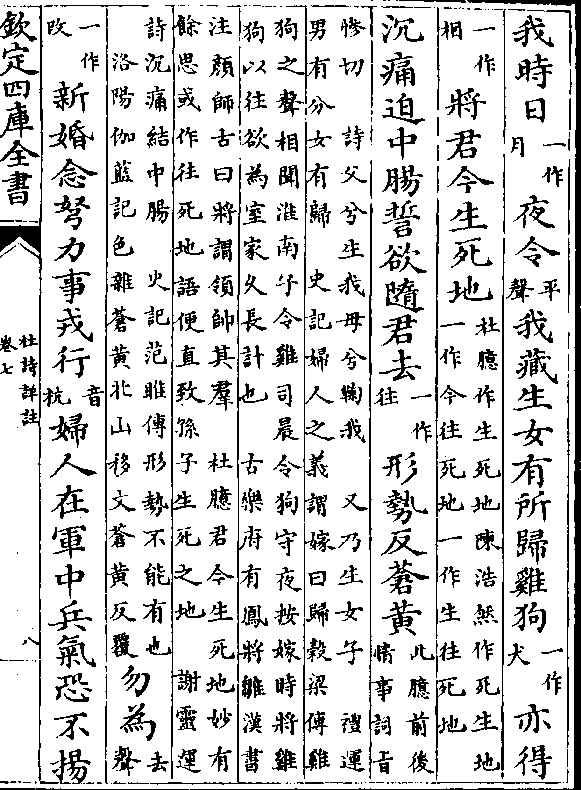 我時日一作月夜令平聲我藏生女有所歸雞狗一作犬亦得
一作相將君今生死地杜臆作生死地陳浩然作死生地
一作今往死地一作生往死地
沉痛迫中腸誓欲隨君去一作往形勢反蒼黃此臆前後
情事詞旨
慘切 詩父兮生我母兮鞠我 又乃生女子 禮運
男有分女有歸 史記婦人之義謂嫁曰歸穀梁傳雞
狗之聲相聞淮南子令雞司晨令狗守夜按嫁時將雞
狗以往欲為室家久長計也 古樂府有鳳將雛漢書
注顏師古曰將謂領帥其羣 杜臆君今生死地妙有
餘思或作往死地語便直致孫子生死之地 謝靈運
詩沉痛結中腸 史記范雎傳形勢不能有也
洛陽伽藍記色雜蒼黃北山移文蒼黃反覆
勿為去聲
一作改新婚念努力事戎行音杭婦人在軍中兵氣恐不揚
欽定四庫全書
杜詩詳註
卷七
八